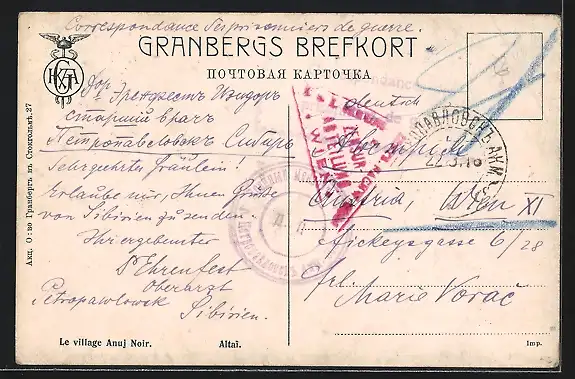 Correspondance des prisonniers de guerre.
GRANBERGS BREFKORT
ПОЧТОВАЯ КАРТОЧКА
Эренфестъ Изидоръ
старшій врачъ
Петропавловскъ Сибирь
Sehr geehrtes Fräulein!
Erlaube mir, Ihnen Grüße
von Sibirien zu senden.
Ihr ergebenster
Ehrenfest
Oberarzt
Petropawlowsk
Sibirien.
deutsch
22.3.16
Austria, Wien XI
6/28
Frl.
Marie Vorač
Акц. О-во Гранбергъ въ Стокгольмѣ. 27
Le village Anuj Noir. Altaï.
Imp.